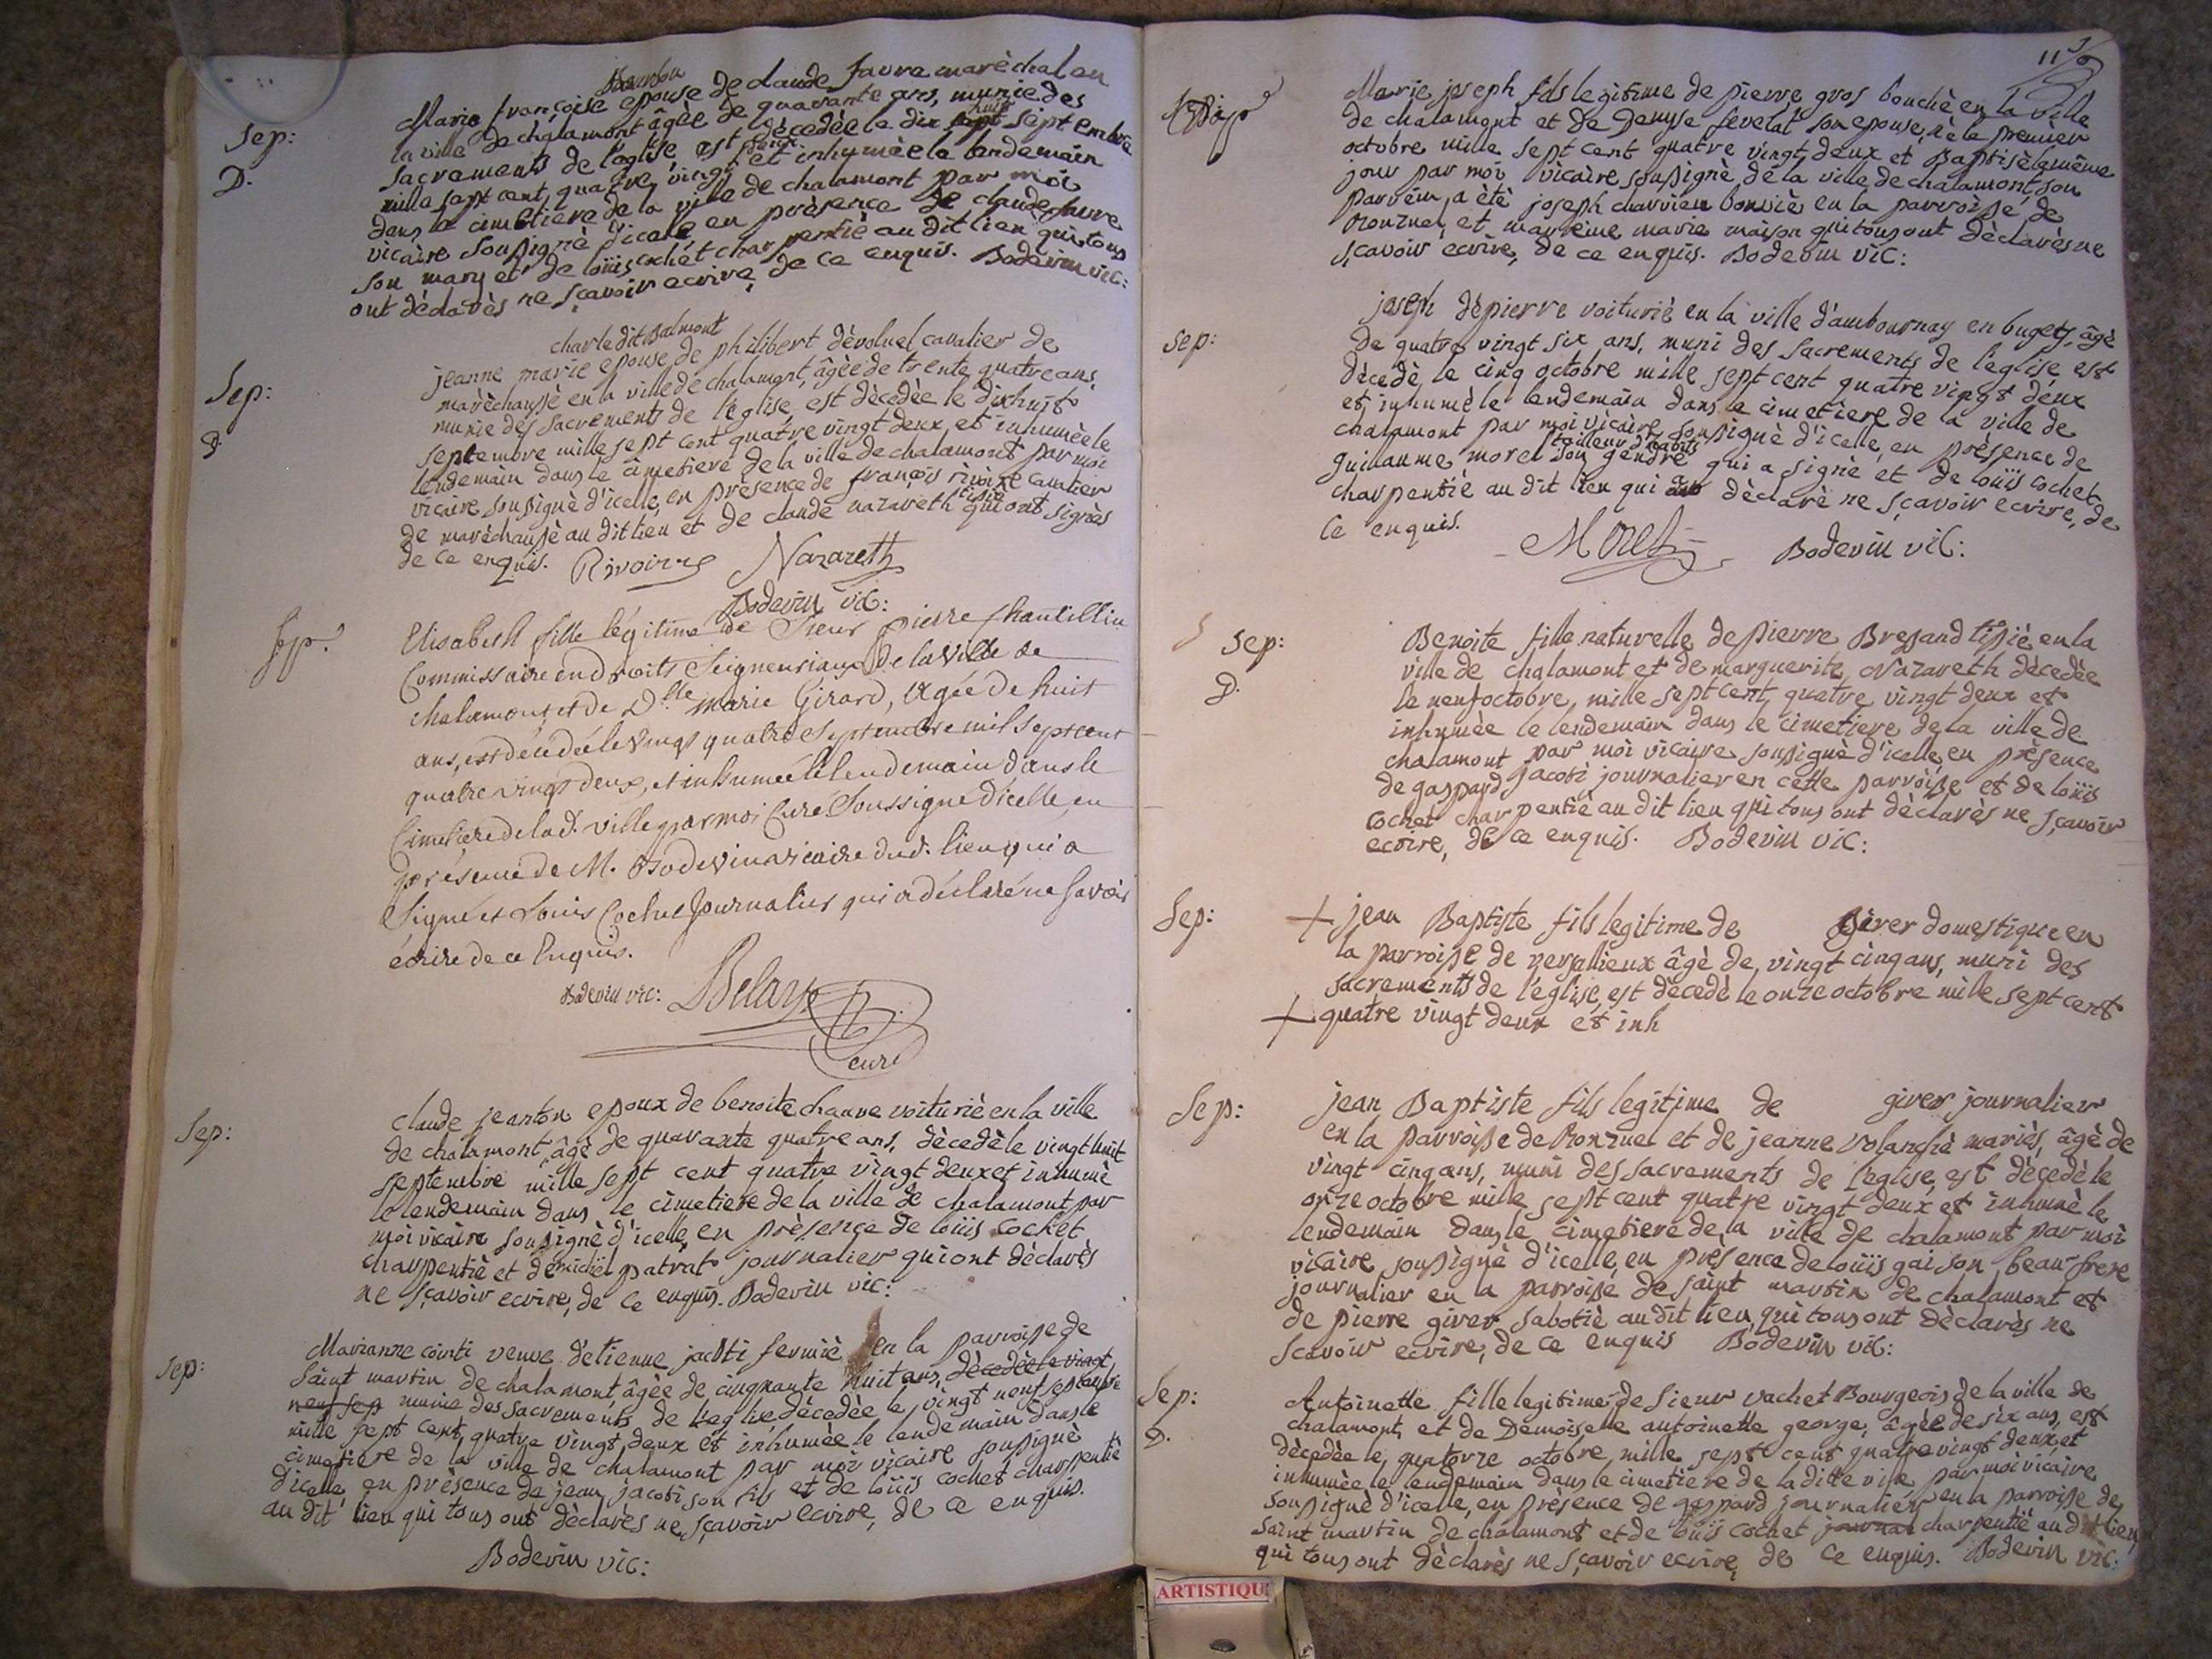 Sep:
D.
Bourbon
Marie françoise epouse de claude favre maréchal en
la ville de chalamont âgèe de quarante ans, munie des
sacrements de l'eglise, est dècedèe le dix huit septembre
mille sept cent quatre vingt deux et inhumèe le lendemain
dans le cimetiere de la ville de chalamont par moi
vicaire soussignè d'icelle en prèsence de claude favre
son mary et de loüis cochet charpentiè au dit lieu qui tous
ont dèclarès ne sçavoir ecrire, de ce enquis. Bodevin vic:
Sep:
D.
charle dit Balmont
jeanne marie epouse de philibert dèvoluel cavalier de
marèchaussè en la ville de chalamont, âgèe de trente quatre ans,
munie des sacrements de l'eglise, est dècedèe le dix huit
septembre mille sept cent quatre vingt deux et inhumèe le
lendemain dans le cimetiere de la ville de chalamont par moi
vicaire soussignè d'icelle, en prèsence de françois rivoire cavalier
de marèchaussè au dit lieu et de claude nazareth tisiè qui ont signès
de ce enquis. Rivoirre Nazareth
Bodevin vic:
Sep.
Elisabeth fille légitime de Sieur Pierre Chantillin
Commissaire en droits Seigneuriaux de la Ville de
chalamont et de Dlle marie Girard, Agée de huit
ans, est décédée le vingt quatre Septembre mil Sept cent
quatre vingt deux, et inhumée le lendemain dans le
Cimetiere de lad. ville par moi Curé Soussigné d'icelle, en
présence de M. Bodevin vicaire dud. lieu qui a
Signé et Louis Cochet Journalier qui a déclaré ne Savoir
écrire de ce Enquis.
Bodevin vic: Belay
curé
Sep:
claude jeanton epoux de benoite chanve voituriè en la ville
de chalamont, âgè de quarante quatre ans, dècedè le vingt huit
septembre mille sept cent quatre vingt deux et inhumè
le lendemain dans le cimetiere de la ville de chalamont par
moi vicaire soussignè d'icelle, en prèsence de loüis cochet
charpentiè et de michel patrat journalier qui ont dèclarès
ne sçavoir ecrire, de ce enquis. Bodevin vic:
Sep:
Marianne cointi veuve d'etienne jacoti fermiè en la parroisse de
saint martin de chalamont, âgèe de cinquante huit ans, dècedèe le vingt
neuf sep munie des sacrements de l'eglise dècedèe le vingt neuf septembre
mille sept cent quatre vingt deux et inhumèe le lendemain dans le
cimetiere de la ville de chalamont par moi vicaire soussignè
d'icelle, en prèsence de jean jacoti son fils et de loüis cochet charpentiè
au dit lieu qui tous ont dèclarès ne sçavoir ecrire, de ce enquis.
Bodevin vic:
Bap
Marie joseph fils legitime de pierre gros bouchè en la ville
de chalamont et de Denyse fevelat son epouse, nè le premier
octobre mille sept cent quatre vingt deux et Baptisè le même
jour par moi vicaire soussignè de la ville de chalamont, son
parrein a ètè joseph charvieu bouviè en la parroisse de
Ronzuel et marreine marie maison qui tous ont dèclarès ne
sçavoir ecrire, de ce enquis. Bodevin vic:
Sep:
joseph dèpierre voituriè en la ville d'ambournay en bugets, âgè
de quatre vingt six ans, muni des sacrements de l'eglise est
dècedè le cinq octobre mille sept cent quatre vingt deux
et inhumè le lendemain dans le cimetiere de la ville de
chalamont par moi vicaire soussignè d'icelle, en prèsence de
tailleur d'habits
guillaume morel son gendre qui a signè et de loüis cochet
charpentiè au dit lieu qui a dèclarè ne sçavoir ecrire, de
ce enquis.
Morel Bodevin vic:
Sep:
D.
Benoite fille naturelle de pierre Bressand tisiè en la
ville de chalamont et de marguerite Nazareth dècedèe
le neuf octobre mille sept cent quatre vingt deux et
inhumèe le lendemain dans le cimetiere de la ville de
chalamont par moi vicaire soussignè d'icelle, en prèsence
de gaspard jacoti journalier en cette parroisse et de loüis
cochet charpentiè au dit lieu qui tous ont dèclarès ne sçavoir
ecrire, de ce enquis. Bodevin vic:
Sep:
+ jean Baptiste fils legitime de Girer domestique en
la parroisse de versallieux âgè de vingt cinq ans, muni des
sacrements de l'eglise, est dècedè le onze octobre mille sept cent
+ quatre vingt deux et inh
Sep:
jean Baptiste fils legitime de girer journalier
en la parroisse de Ronzuel et de jeanne volanchè mariès, âgè de
vingt cinq ans, muni des sacrements de l'eglise, est dècedè le
onze octobre mille sept cent quatre vingt deux et inhumè le
lendemain dans le cimetiere de la ville de chalamont par moi
vicaire soussignè d'icelle, en prèsence de loüis gaison beau frere
journalier en la parroisse de saint martin de chalamont et
de pierre girer sabotiè au dit lieu, qui tous ont dèclarès ne
scavoir ecrire, de ce enquis Bodevin vic:
Sep:
D.
Antoinette fille legitime de sieur vachet Bourgeois de la ville de
chalamont, et de Demoiselle antoinette george, âgèe de six ans, est
dècedèe le quatorze octobre mille sept cent quatre vingt deux, et
inhumèe le lendemain dans le cimetiere de la ditte ville par moi vicaire
soussignè d'icelle, en prèsence de gaspard journalier en la parroisse de
saint martin de chalamont et de loüis cochet journal charpentiè au dit lieu,
qui tous ont dèclarès ne sçavoir ecrire, de ce enquis. Bodevin vic:
ARTISTIQU